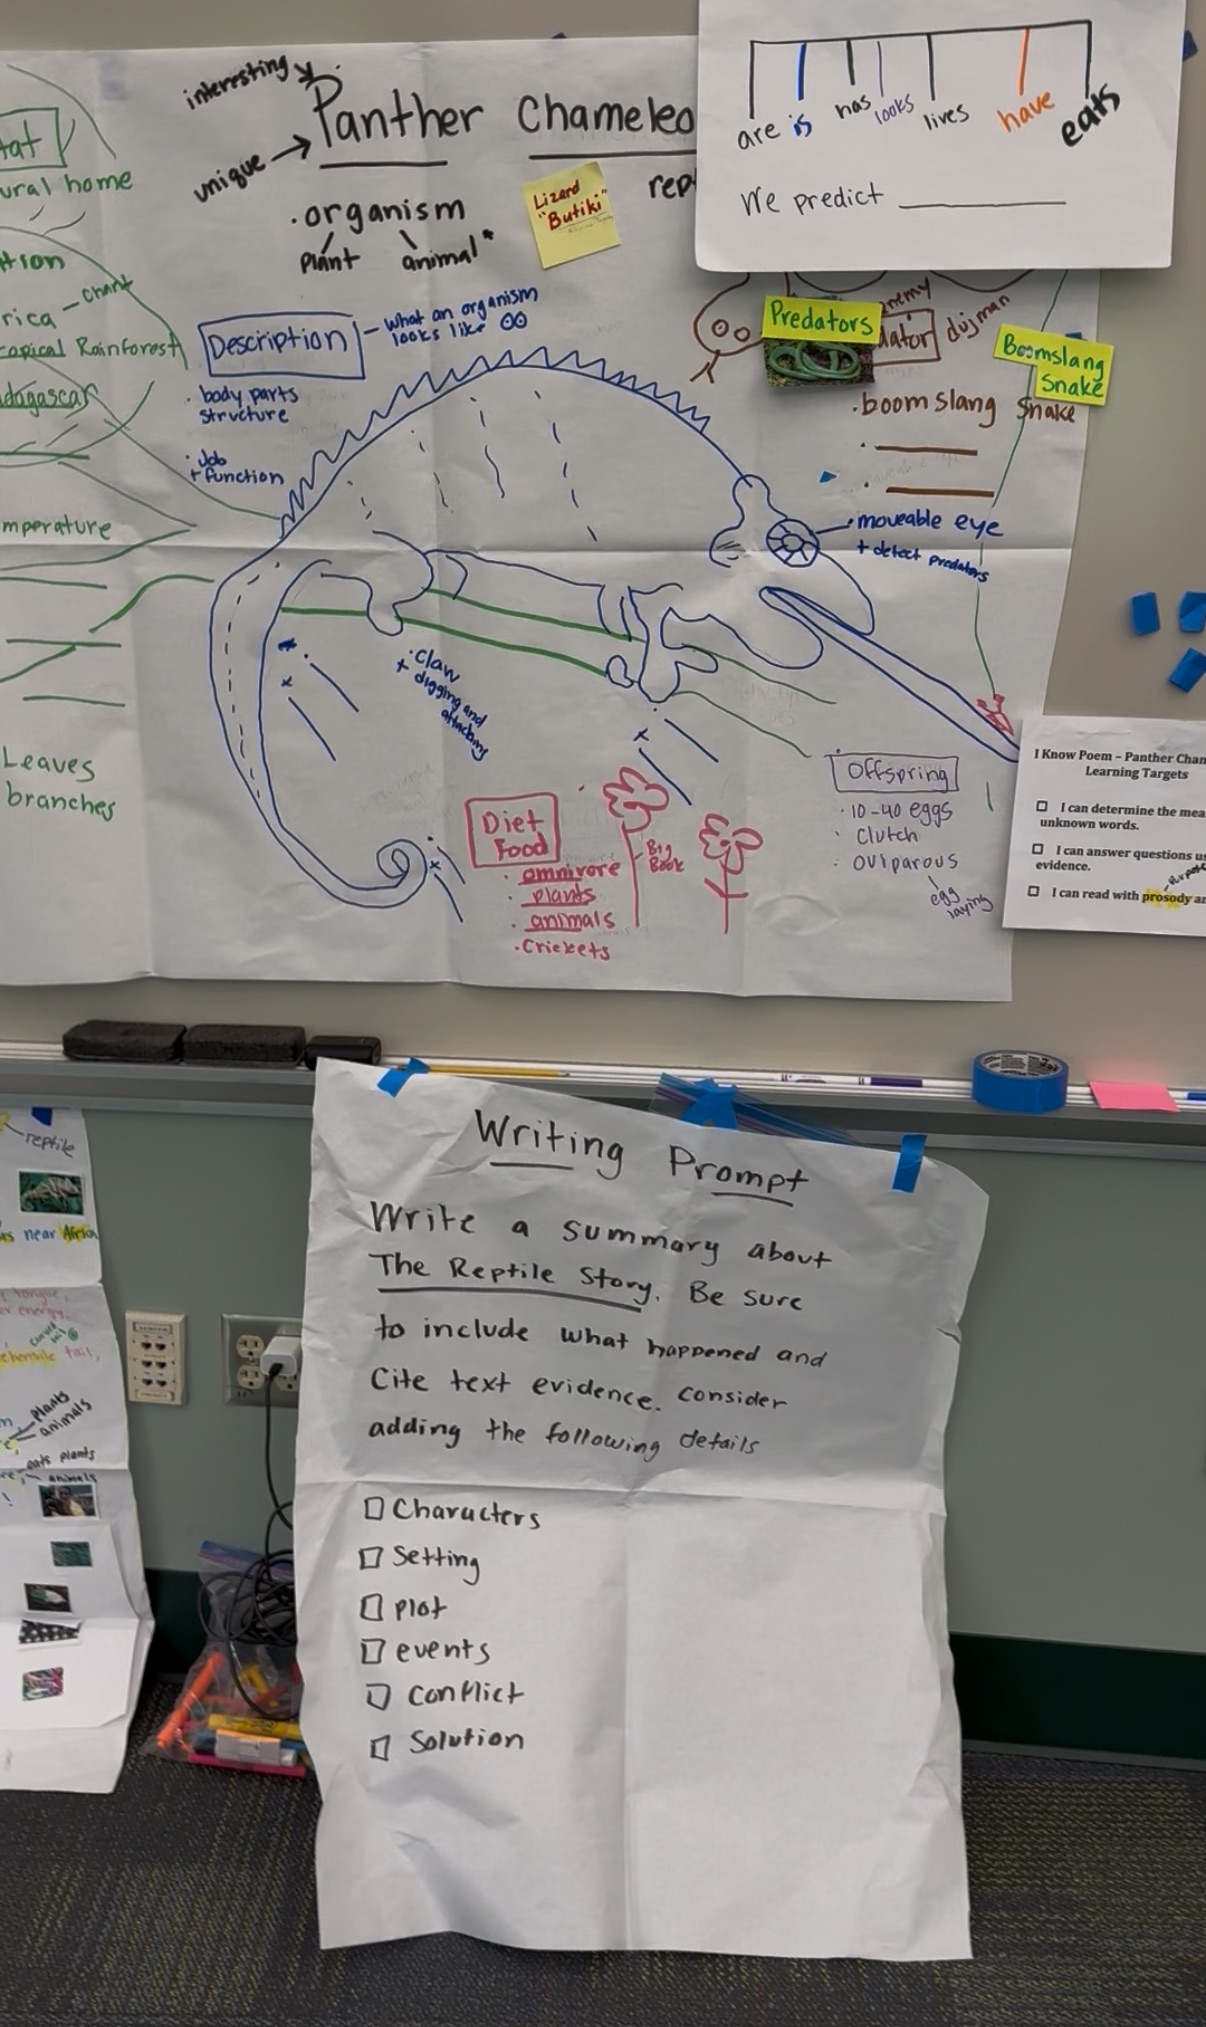 interesting
unique
Panther Chameleo
. organism
plant animal*
Lizard
"Butiki"
rep
are is has looks lives have eats
We predict
tat
ural home
tion
rica - chant
ropical Rainforest
adagascar
mperature
Leaves
branches
Description
- what an organism
looks like
. body parts
structure
. Job
+ function
Predators
enemy
dator
dújman
Boomslang
Snake
. boomslang snake
. moveable eye
+ detect predators
. Claw
+ digging and
attaching
Diet
Food
. omnivore
. plants
. animals
. Crickets
Big
Book
Offspring
. 10-40 eggs
. Clutch
. oviparous
egg
laying
I Know Poem – Panther Cham
Learning Targets
I can determine the mea
unknown words.
I can answer questions us
evidence.
I can read with prosody an
reptile
ts near Africa
tongue,
or energy,
curled
hensile tail,
plants
animals
eats plants
animals
Writing Prompt
Write a summary about
The Reptile Story. Be sure
to include what happened and
Cite text evidence. consider
adding the following details
Characters
Setting
plot
events
Conflict
Solution